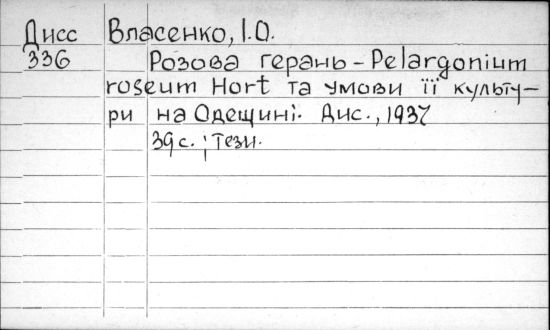 Дисс Власенко, І.О.
336 Розова герань – Pelargonium
roseum Hort та умови її культу-
ри на Одещині. Дис., 1937
39 с. ; тези.